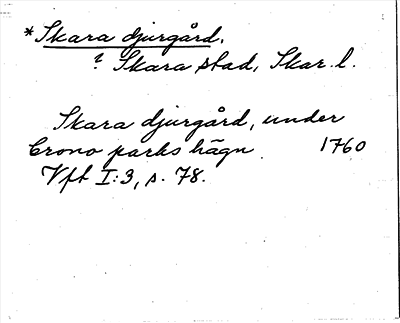 *Skara djurgård.
? Skara stad, Skar. l.
Skara djurgård, under
Crono parks hägn. 1760
Vft I:3, s. 78.